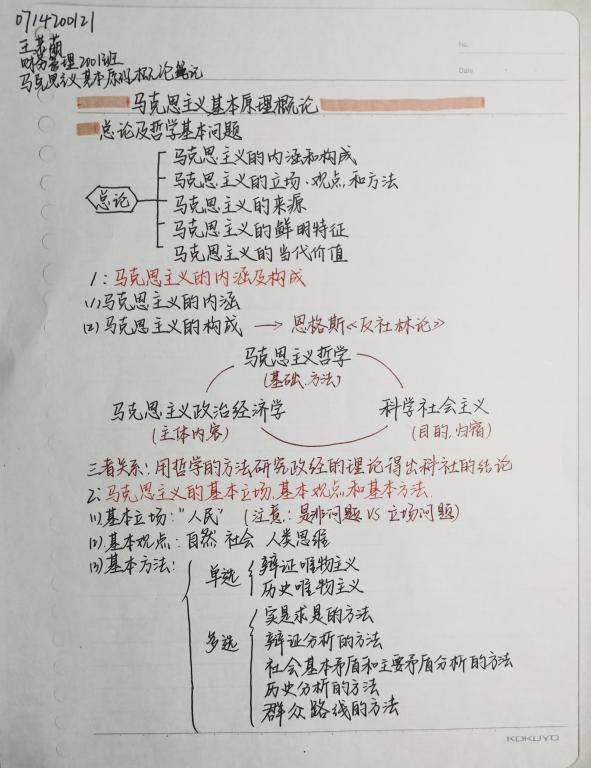 0714200121
王慧萌
财务管理2001班
马克思主义基本原理概论笔记
No.
Date
马克思主义基本原理概论
总论及哲学基本问题
总论
马克思主义的内涵和构成
马克思主义的立场、观点和方法
马克思主义的来源
马克思主义的鲜明特征
马克思主义的当代价值
1:马克思主义的内涵及构成
(1)马克思主义的内涵
(2)马克思主义的构成 → 恩格斯《反杜林论》
马克思主义哲学
(基础、方法)
马克思主义政治经济学 科学社会主义
(主体内容) (目的,归宿)
三者关系:用哲学的方法研究政经的理论得出科社的结论
2:马克思主义的基本立场、基本观点和基本方法.
(1)基本立场:"人民" (注意:是非问题 VS 立场问题)
(2)基本观点:自然 社会 人类思维
(3)基本方法:
单选
辩证唯物主义
历史唯物主义
多选
实是求是的方法
辩证分析的方法
社会基本矛盾和主要矛盾分析的方法
历史分析的方法
群众路线的方法
KOKUYO